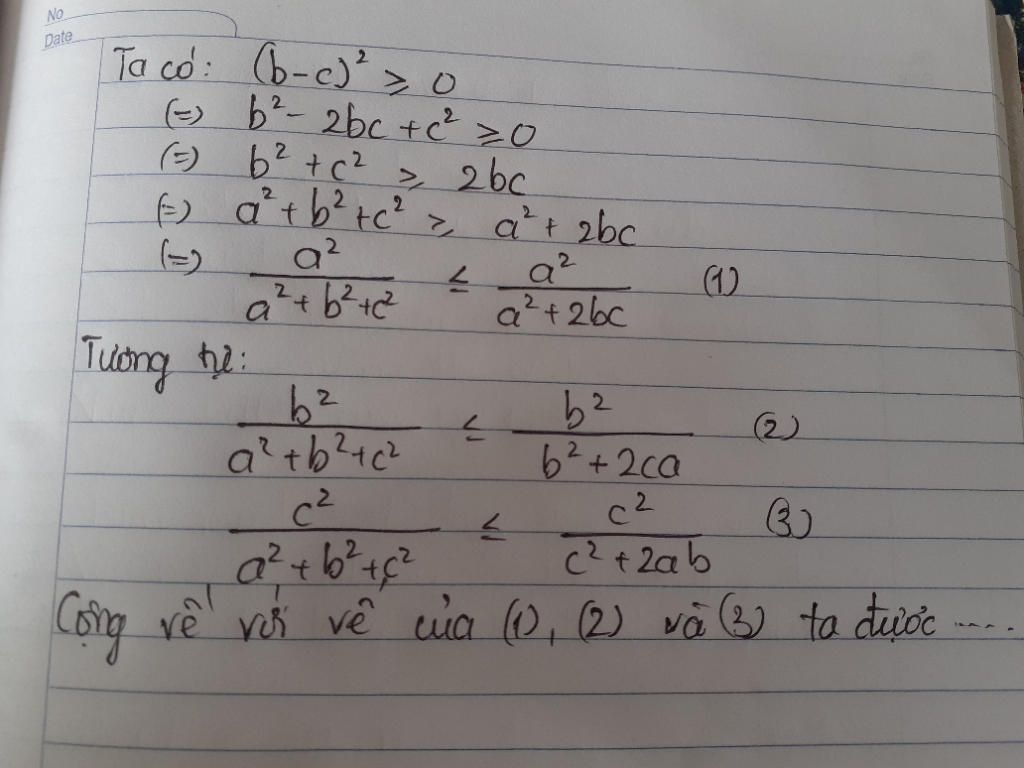 No
Date
Ta có: (b-c)² ≥ 0
(=) b² - 2bc + c² ≥ 0
(=) b² + c² ≥ 2bc
(=) a² + b² + c² ≥ a² + 2bc
(=) a²/(a² + b² + c²) ≤ a²/(a² + 2bc) (1)
Tương tự:
b²/(a² + b² + c²) ≤ b²/(b² + 2ca) (2)
c²/(a² + b² + c²) ≤ c²/(c² + 2ab) (3)
Cộng vế với vế của (1), (2) và (3) ta được .....